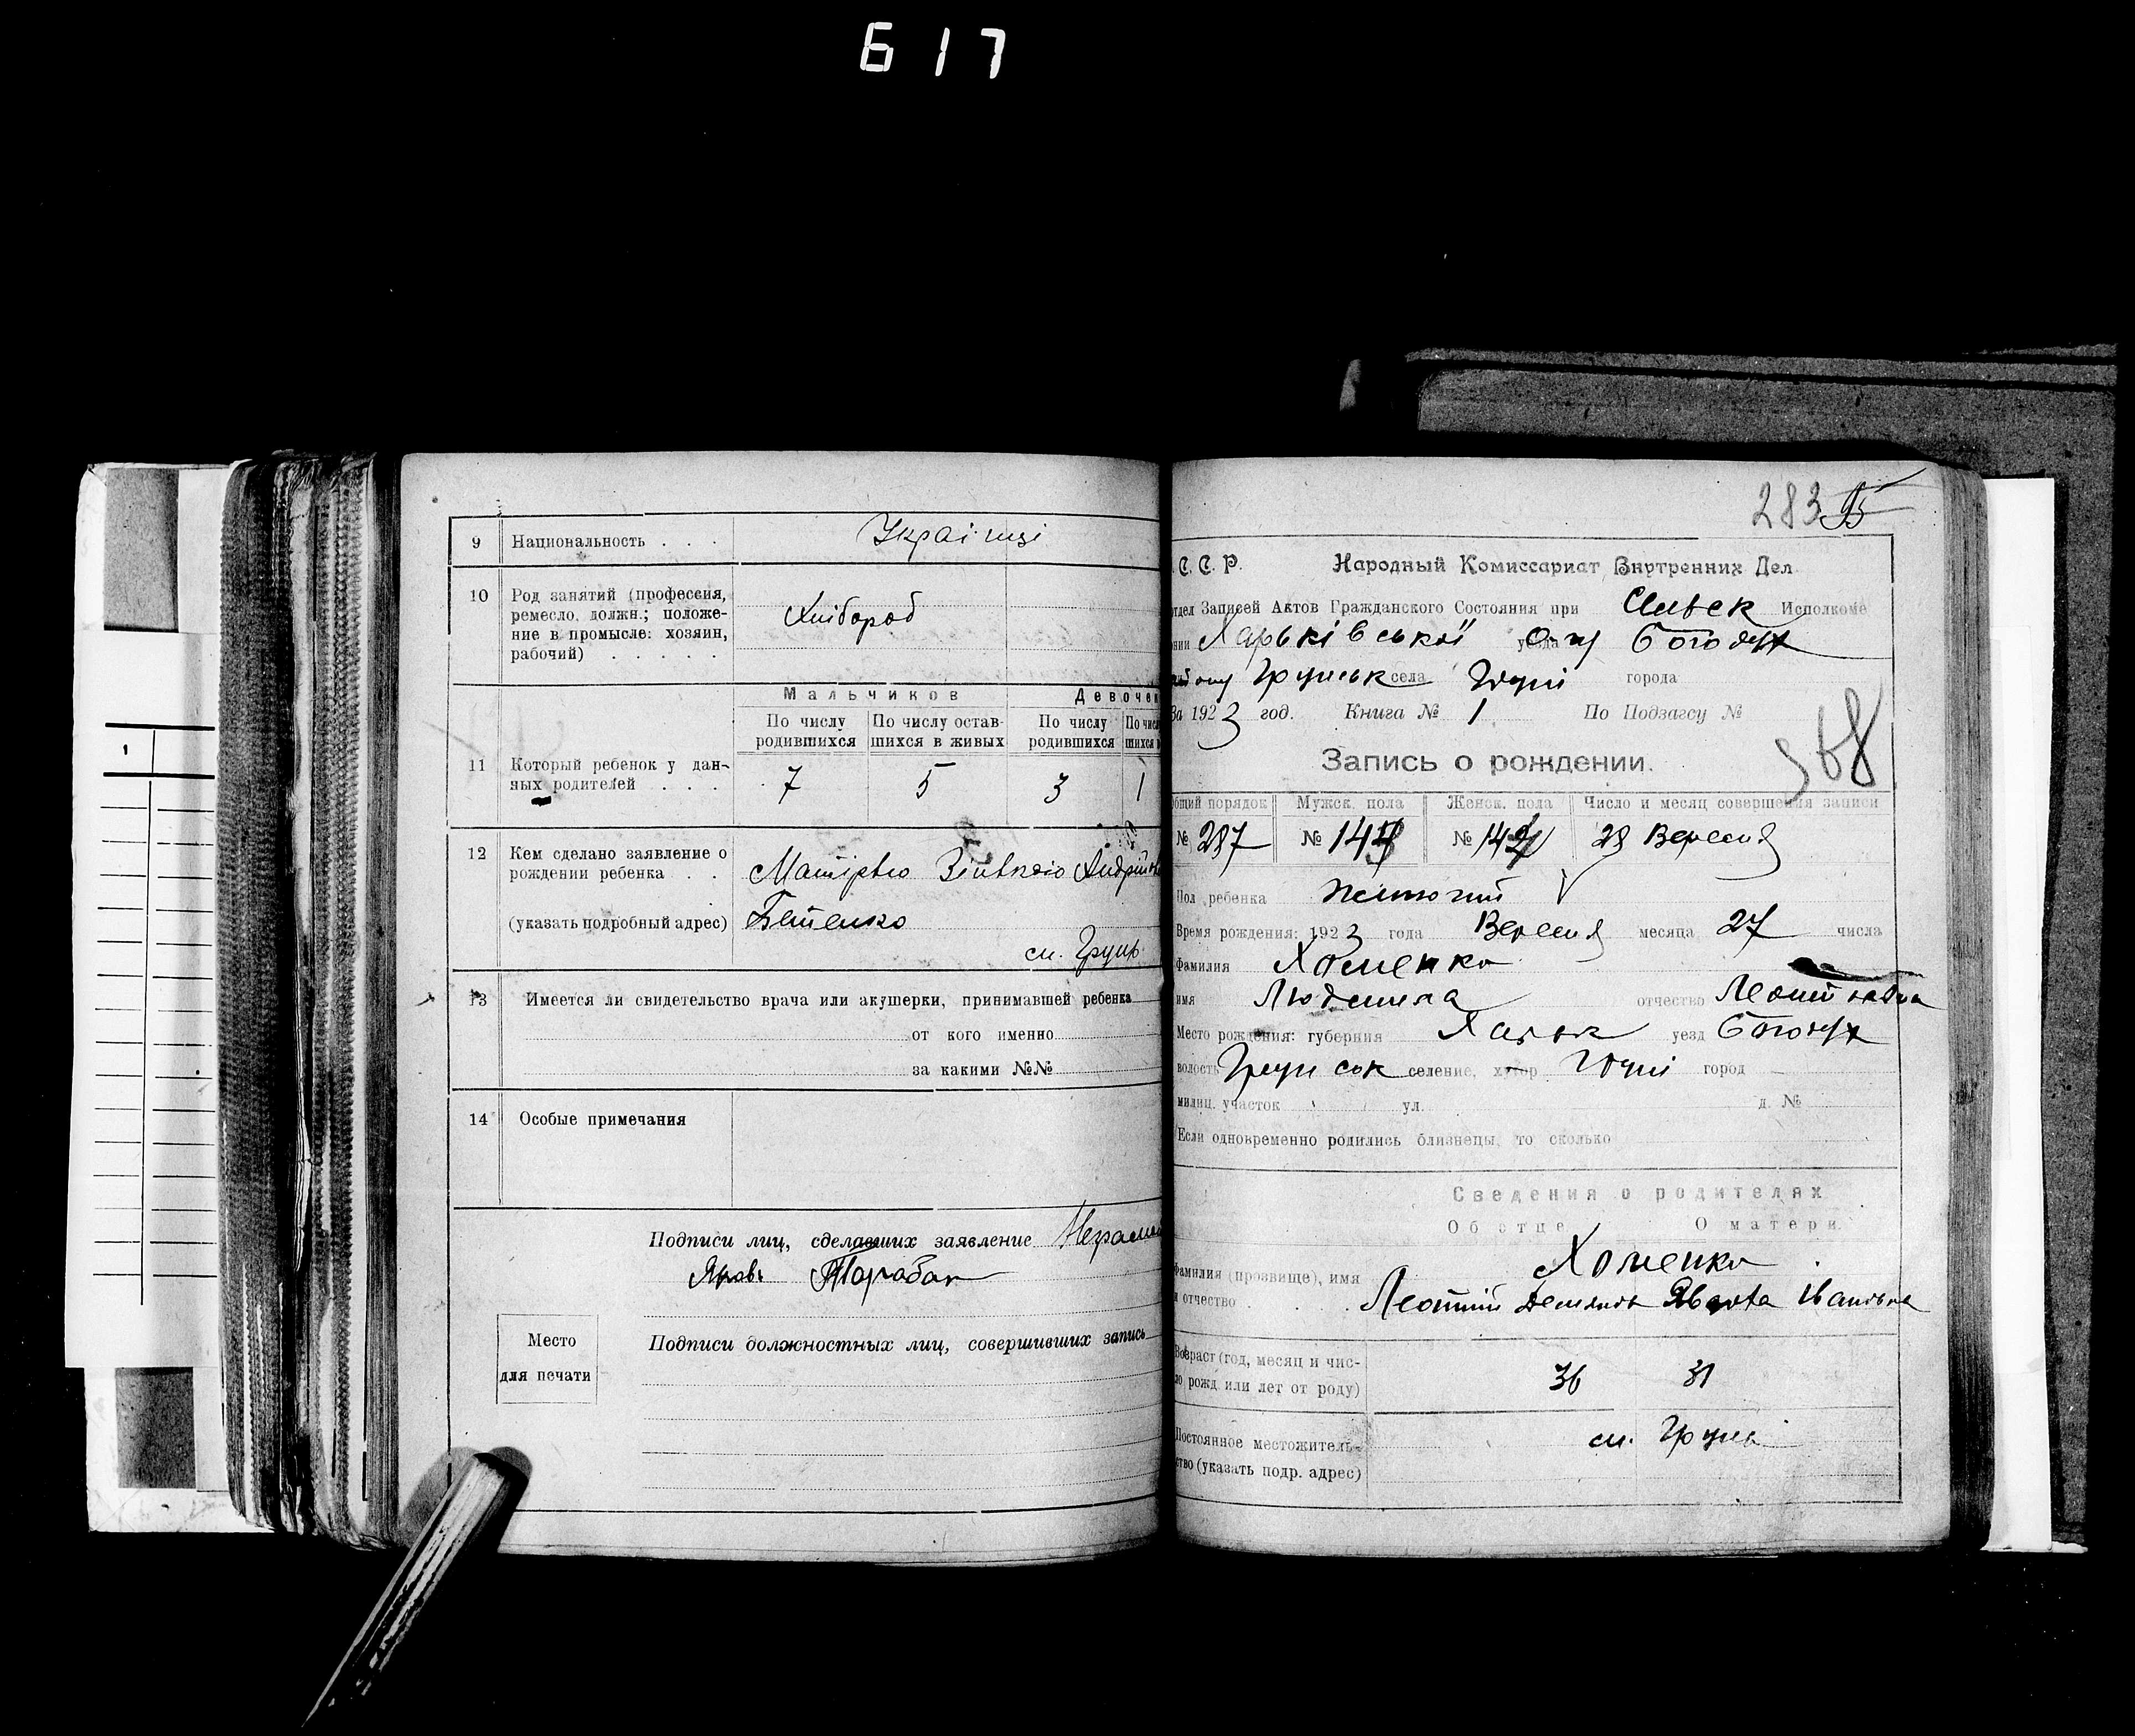 617
9 Национальность . . . Українці
10 Род занятий (профессия, ремесло, должн.; положе-
ние в промысле: хозяин,
рабочий) . . . . . Хлібороб
Мальчиков Девочек
По числу родившихся По числу остав-шихся в живых По числу родившихся
11 Который ребенок у дан-
ных родителей . . . 7 5 3 1
12 Кем сделано заявление о
рождении ребенка . . Матірью Зінькою
(указать подробный адрес)
см. Грунь
13 Имеется ли свидетельство врача или акушерки, принимавшей ребенка
от кого именно
за какими №№
14 Особые примечания
Подписи лиц, сделавших заявление
Яков Тарабан
Место
для печати
Подписи должностных лиц, совершивших запись
283
.С.С.Р. Народный Комиссариат Внутренних Дел
отдел Записей Актов Гражданского Состояния при Исполкоме
Харьківської уезда Богодух
Грунськ села Груні города
За 1923 год. Книга № 1 По Подзагсу №
368
Запись о рождении.
общий порядок Мужск. пола Женск. пола Число и месяц совершения записи
№ 287 № 14 № 14 28 Вересня
Пол ребенка Жіночий
Время рождения: 1923 года Вересня месяца 27 числа
Фамилия Хоменко
имя Людмила отчество
Место рождения: губерния Харьк уезд Богодух
волость Грунськ селение, хутор Груні город
милиц. участок ул. д. №
Если одновременно родились близнецы, то сколько
Сведения о родителях
Об отце О матери.
Хоменко
Фамилия (прозвище), имя
и отчество . . . Леонтій Демянов Івановна
Возраст (год, месяц и чис-
ло рожд. или лет от роду) 36 31
Постоянное местожитель-
ство (указать подр. адрес) см. Грунь